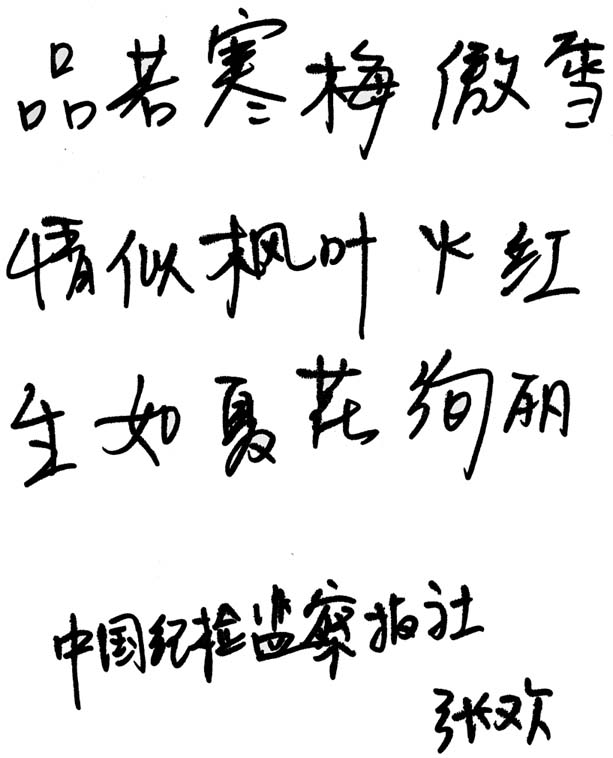 品若寒梅傲雪
情似枫叶火红
生如夏花绚丽
中国纪检监察报社
张欢